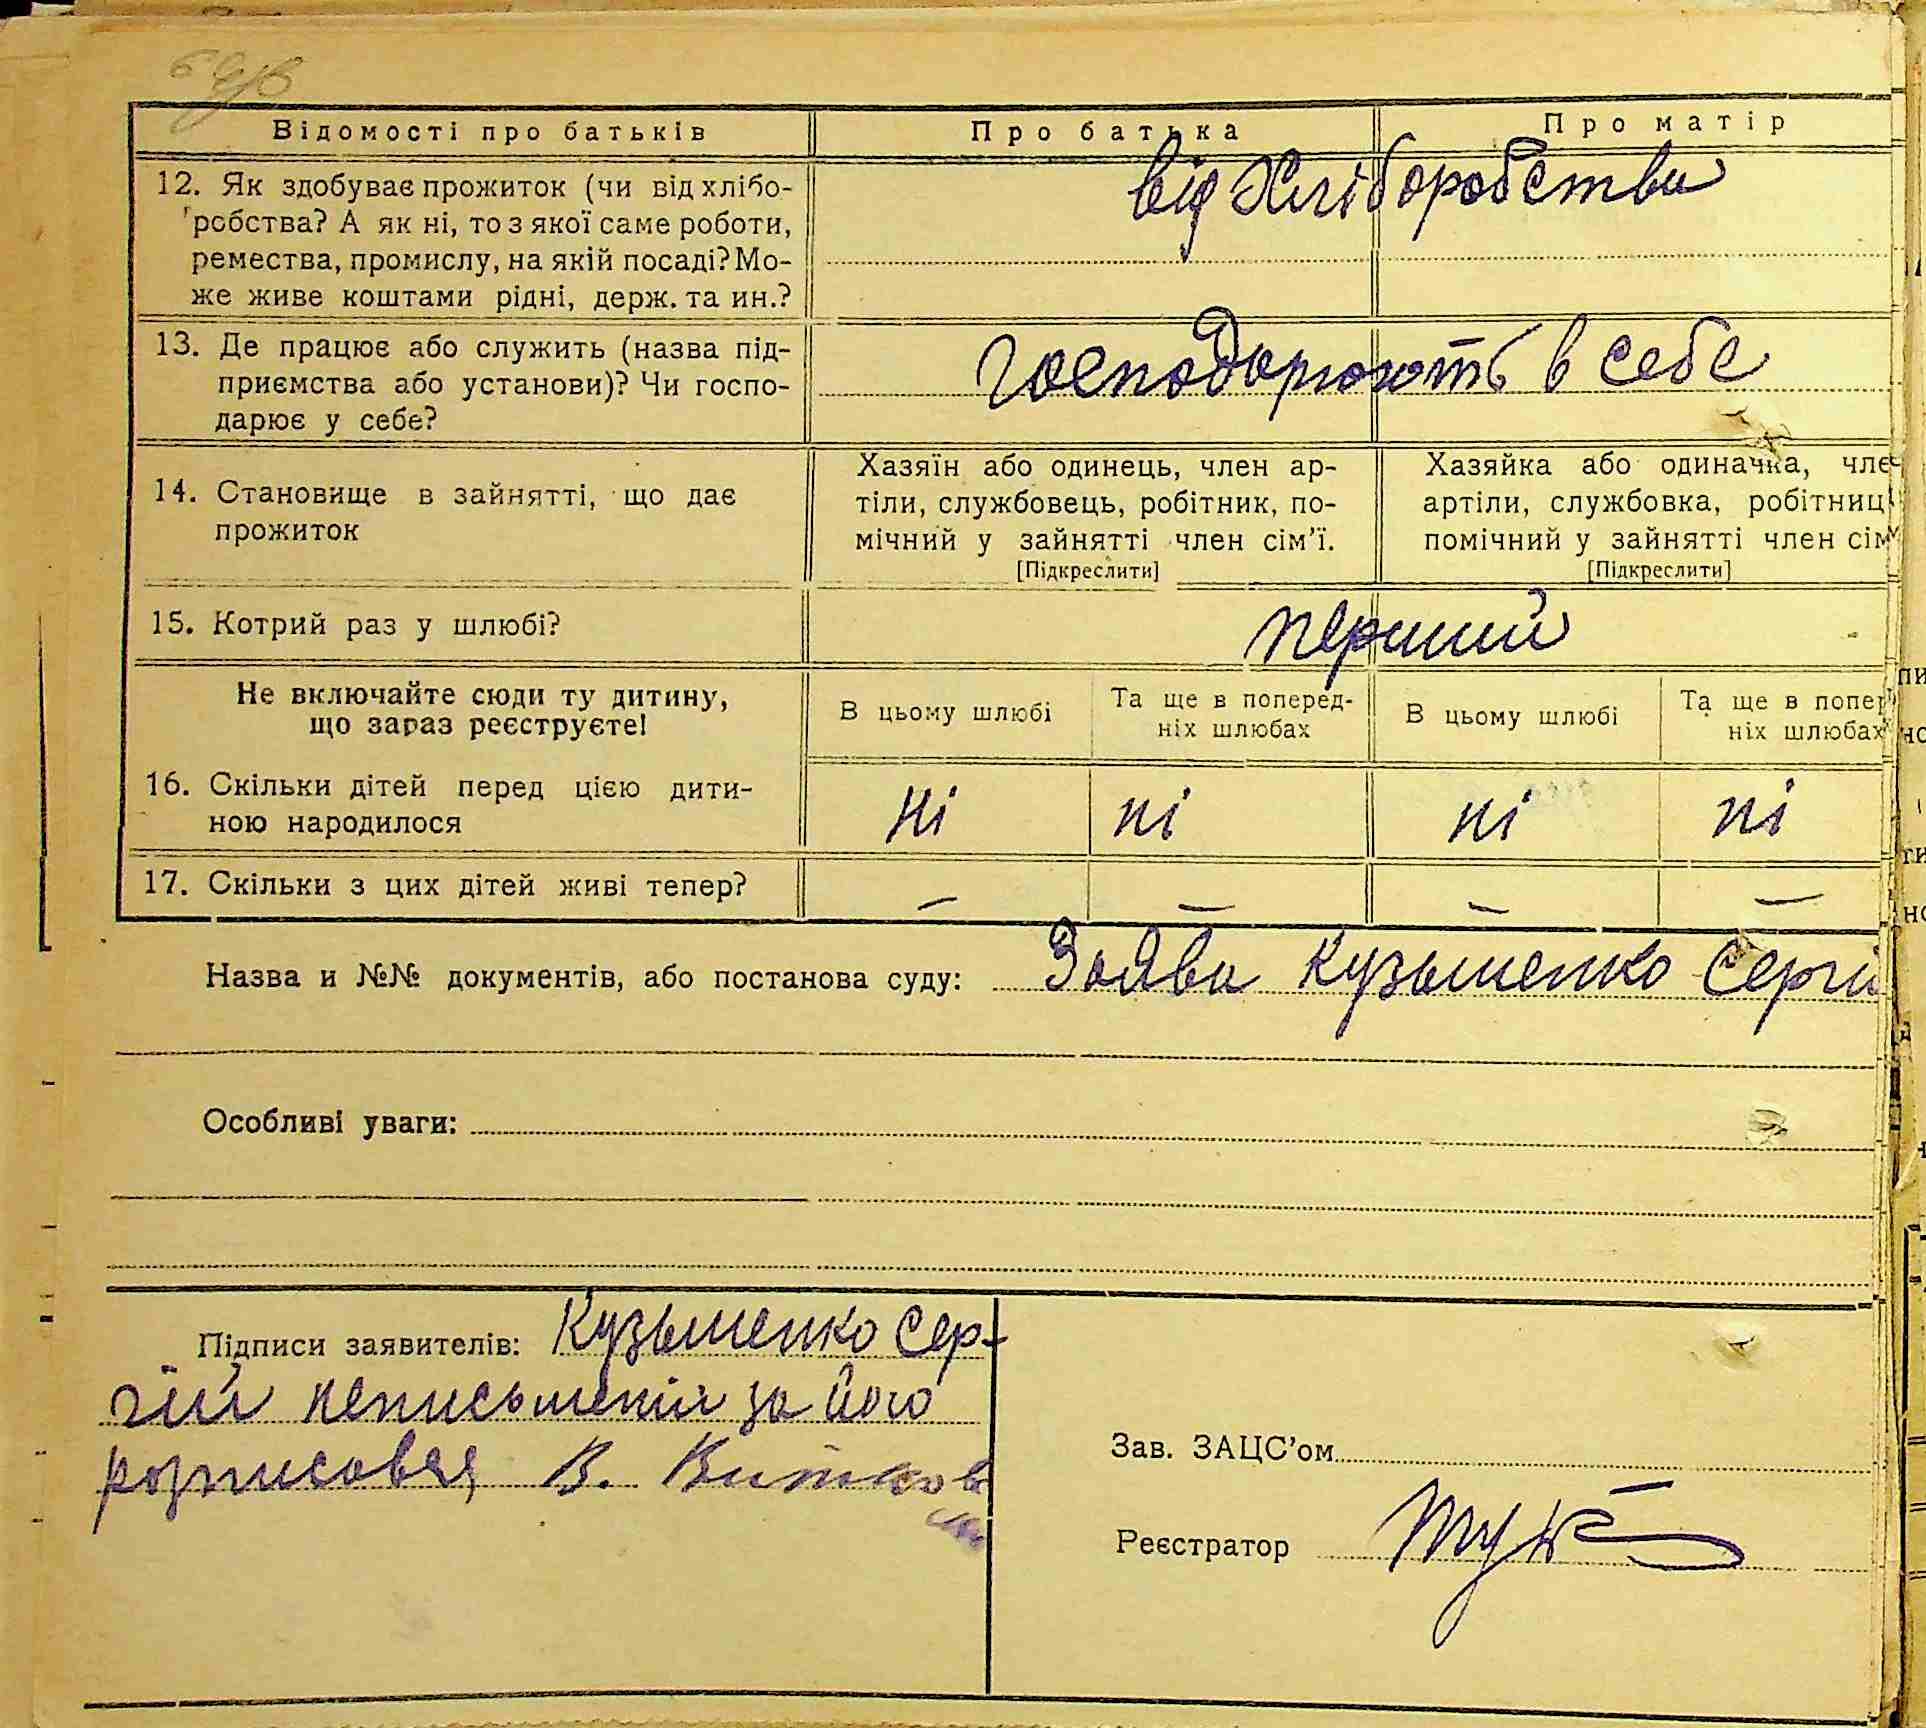 Відомості про батьків Про батька Про матір
12. Як здобуває прожиток (чи від хлібо-
робства? А як ні, то з якої саме роботи,
ремества, промислу, на якій посаді? Мо-
же живе коштами рідні, держ. та ин.?
від Хліборобства
13. Де працює або служить (назва під-
приємства або установи)? Чи госпо-
дарює у себе?
господарюють в себе
14. Становище в зайнятті, що дає
прожиток
Хазяїн або одинець, член ар-
тіли, службовець, робітник, по-
мічний у зайнятті член сім'ї.
[Підкреслити]
Хазяйка або одиначка, член
артіли, службовка, робітниц
помічний у зайнятті член сім
[Підкреслити]
15. Котрий раз у шлюбі?
перший
Не включайте сюди ту дитину,
що зараз реєструєте!
В цьому шлюбі
Та ще в поперед-
ніх шлюбах
В цьому шлюбі
Та ще в попер
ніх шлюбах
16. Скільки дітей перед цією дити-
ною народилося
ні ні ні ні
17. Скільки з цих дітей живі тепер?
– – – –
Назва и №№ документів, або постанова суду: Заява Кузьменко Сергій
Особливі уваги:
Підписи заявителів: Кузьменко Сер-
гій неписьменій за його
розписовся В.
Зав. ЗАЦС'ом
Реєстратор